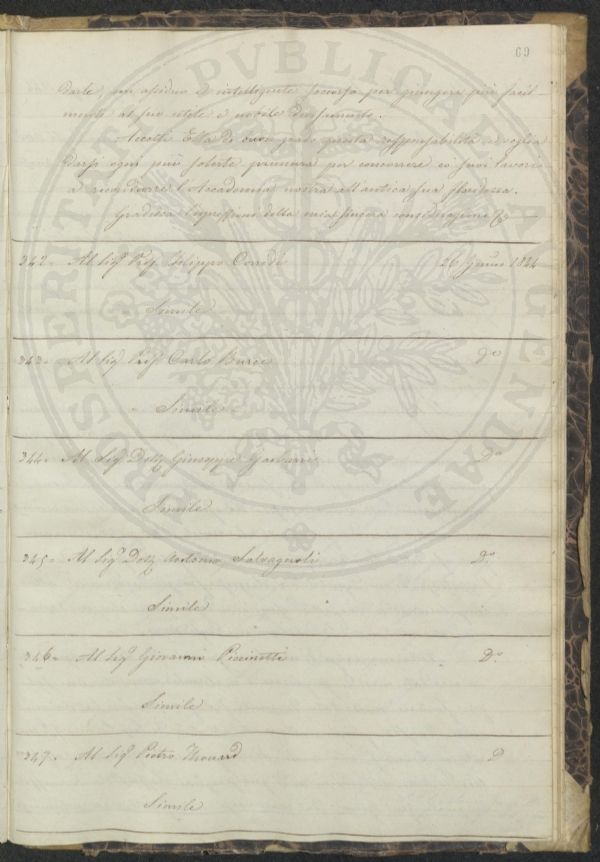 69
darle, un assiduo ed intelligente soccorso per giungere più facil-
mente al suo utile e nobile divisamento.
Accolta Ella di buon grado questa responsabilità e voglia
darsi ogni più solerte premura per concorrere co' suoi lavori
a ricondurre l'Accademia nostra all'antica sua floridezza.
Gradisca l'espressione della mia sincera considerazione
342. Al Sigr Prof. Filippo Corridi 26
Simile
343. Al Sigr Prof. Carlo Burci Do
Simile
344. Al Sigr Dott. Giuseppe Do
Simile
345. Al Sigr Dott. Antonio Salvagnoli Do
Simile
346. Al Sigr Giovanni Piccinetti Do
Simile
347. Al Sigr Pietro Thouar D
Simile